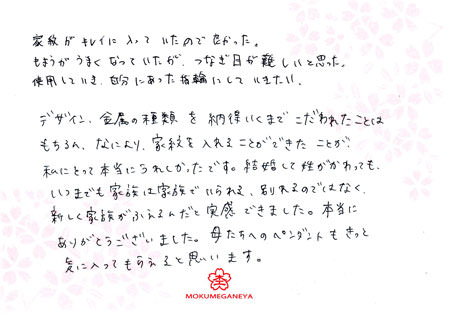 家紋がキレイに入っていたので良かった。
もようがうまくなっていたが、つなぎ目が難しいと思った。
使用していき、自分にあった指輪にしていきたい。
デザイン、金属の種類を納得いくまでこだわれたことは
もちろん、なにより、家紋を入れることができたことが、
私にとって本当にうれしかったです。結婚して姓がかわっても、
いつまでも家族は家族でいられる、別れるのではなく、
新しく家族がふえるんだと実感できました。本当に
ありがとうございました。母たちへのペンダントもきっと
気に入ってもらえると思います。
MOKUMEGANEYA